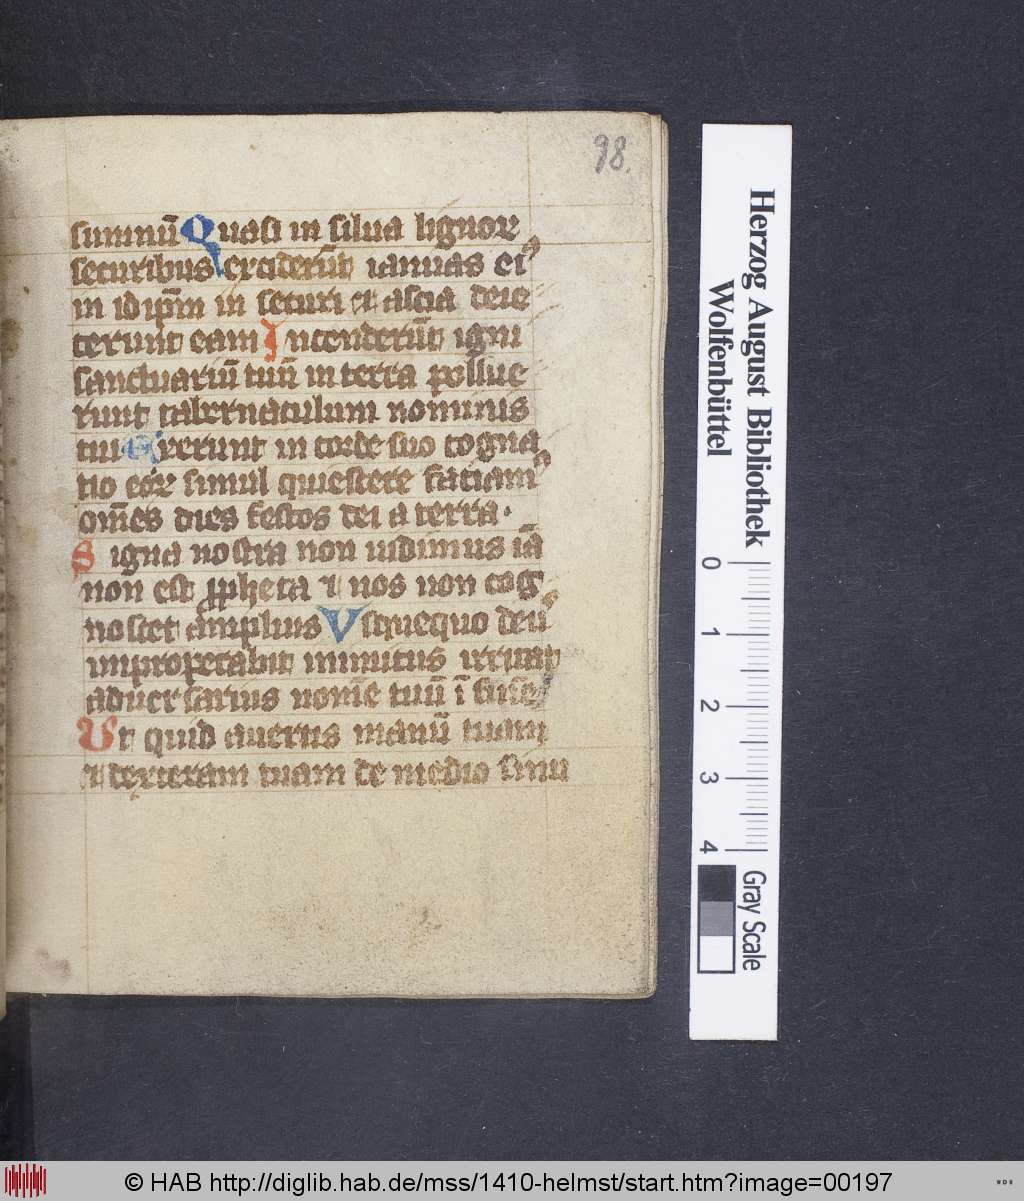 98.
summū Quasi in silua lignoꝝ
securibus exciderūt ianuas ei⁹
in idip̄m in securi et ascia deie
cerunt eam Incenderūt igni
sanctuariū tuū in terra pollue
runt tabernaculum nominis
tui Dixerunt in corde suo cogna
tio eoꝝ simul quiescere faciam⁹
om̄es dies festos dei a terra ·
Signa nostra non uidimus iā
non est ꝓpheta ⁊ nos non cog
noscet amplius Vsquequo deus
improperabit inimicus irritat
aduersarius nom̄e tuū ī fine
Ut quid auertis manū tuam
⁊ dexteram tuam de medio sinu
Herzog August Bibliothek
Wolfenbüttel
0 1 2 3 4
Gray Scale
© HAB http://diglib.hab.de/mss/1410-helmst/start.htm?image=00197